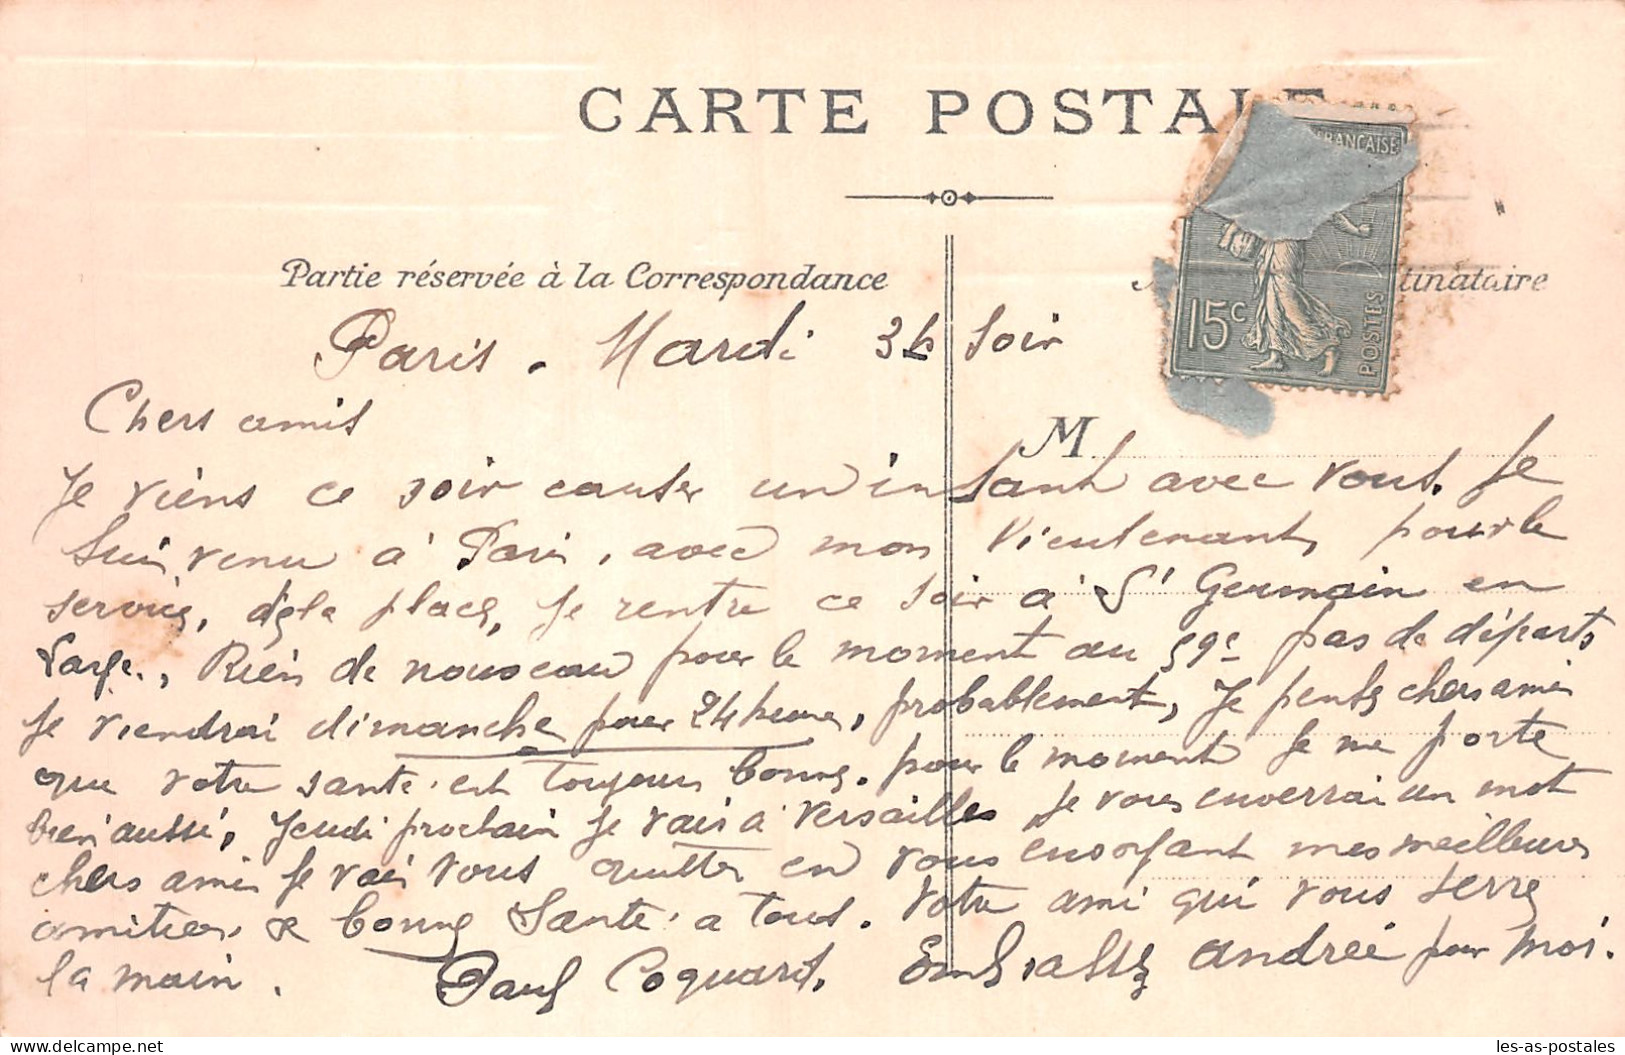 CARTE POSTALE
FRANÇAISE
15c
POSTES
Partie réservée à la Correspondance
tinataire
Paris. Mardi 3h Soir
M
Chers amis
Je viens ce soir causer un instant avec vous. Je
Suis venu à Paris, avec mon Lieutenant, pour le
service, de la place, je rentre ce soir à St Germain en
Laye., Rien de nouveau pour le moment au 59e pas de départs
Je viendrai dimanche pour 24 heures, probablement, Je pense chers amis
que votre santé est toujours bonne. pour le moment je me porte
bien aussi, Jeudi prochain je vais à Versailles je vous enverrai un mot
chers amis je vais vous quitter en vous envoyant mes meilleures
amitiés & bonne Santé à tous. Votre ami qui vous serre
la main. Paul Coquard. Embrassez andrée pour moi.
les-as-postales
www.delcampe.net